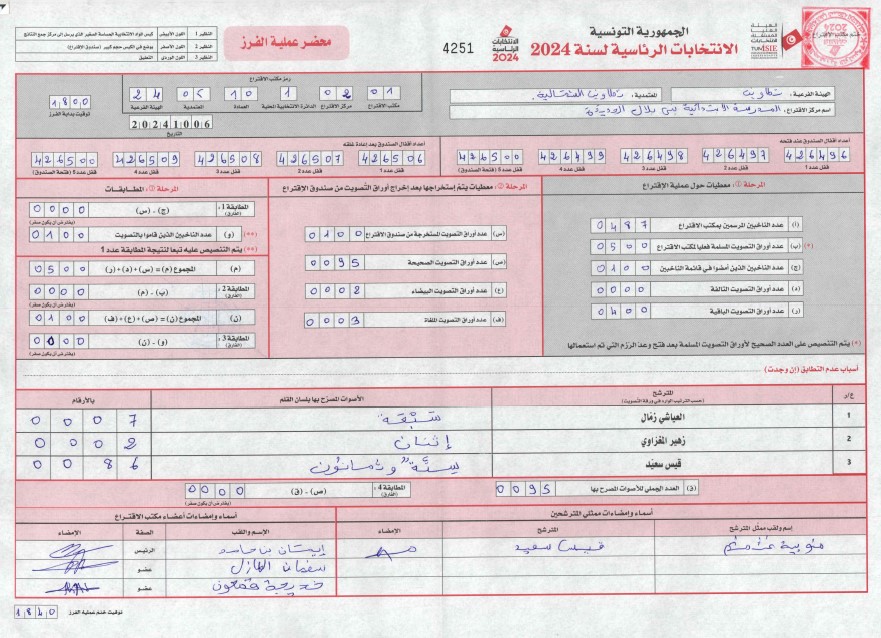 الجمهورية التونسية
الانتخابات الرئاسية لسنة 2024
الانتخابات الرئاسية 2024
4251
محضر عملية الفرز
النظير 1 اللون الأبيض
النظير 2 اللون الأصفر
النظير 3 اللون الوردي التعليق
الهيئة الفرعية: تطاوين
المعتمدية: تطاوين الشمالية
اسم مركز الاقتراع: المدرسة الابتدائية بني بلال الجديدة
رمز مكتب الاقتراع
01 02 1 10 05 24
مكتب الاقتراع مركز الاقتراع الدائرة الانتخابية المحلية العمادة المعتمدية الهيئة الفرعية
20241006
التاريخ
1800
توقيت بداية الفرز
أعداد أقفال الصندوق عند فتحه
426496 426497 426498 426499 426500
قفل عدد 1 قفل عدد 2 قفل عدد 3 قفل عدد 4 قفل عدد 5 (فتحة الصندوق)
أعداد أقفال الصندوق بعد إعادة غلقه
426506 426507 426508 426509 426500
قفل عدد 1 قفل عدد 2 قفل عدد 3 قفل عدد 4 قفل عدد 5 (فتحة الصندوق)
المرحلة ①: معطيات حول عملية الاقتراع
(أ) عدد الناخبين المرسمين بمكتب الاقتراع 0487
(*) (ب) عدد أوراق التصويت المسلمة فعليا لمكتب الاقتراع 0500
(ج) عدد الناخبين الذين أمضوا في قائمة الناخبين 0100
(د) عدد أوراق التصويت التالفة 0000
(ر) عدد أوراق التصويت الباقية 0400
(*) يتم التنصيص على العدد الصحيح لأوراق التصويت المسلمة بعد فتح وعد الرزم التي تم استعمالها
المرحلة ②: معطيات يتم إستخراجها بعد إخراج أوراق التصويت من صندوق الإقتراع
(س) عدد أوراق التصويت المستخرجة من صندوق الاقتراع 0100
(ص) عدد أوراق التصويت الصحيحة 0095
(ع) عدد أوراق التصويت البيضاء 0002
(ف) عدد أوراق التصويت الملغاة 0003
المرحلة ③: المطابقات
المطابقة 1: (الفارق) (ج) - (س) 0000
(يفترض أن يكون صفر)
(**) (و) عدد الناخبين الذين قاموا بالتصويت 0100
(**) يتم التنصيص عليه تبعا لنتيجة المطابقة عدد 1
(م) المجموع (م) = (س) + (د) + (ر) 0500
المطابقة 2: (الفارق) (ب) - (م) 0000
(يفترض أن يكون صفر)
(ن) المجموع (ن) = (ص) + (ع) + (ف) 0100
المطابقة 3: (الفارق) (و) - (ن) 0000
(يفترض أن يكون صفر)
أسباب عدم التطابق (إن وجدت)
ع/ر المترشح الأصوات المصرح بها بلسان القلم بالأرقام
(حسب الترتيب الوارد في ورقة التصويت)
1 العياشي زمّال سبعة 0007
2 زهير المغزاوي إثنان 0002
3 قيس سعيّد ستّة وثمانون 0086
(ق) العدد الجملي للأصوات المصرح بها 0095
المطابقة 4: (الفارق) (ص) - (ق) 0000
(يفترض أن يكون صفر)
أسماء وإمضاءات ممثلي المترشحين
إسم ولقب ممثل المترشح المترشح الإمضاء
قيس سعيد
أسماء وإمضاءات أعضاء مكتب الاقتراع
الإسم واللقب الصفة الإمضاء
الرئيس
عضو
خديجة عضو
توقيت ختم عملية الفرز 1840